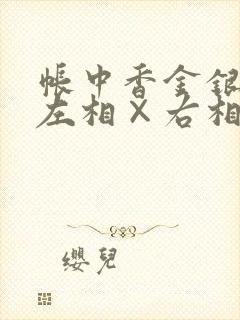 帳中香金銀
左相×右相
纓兒